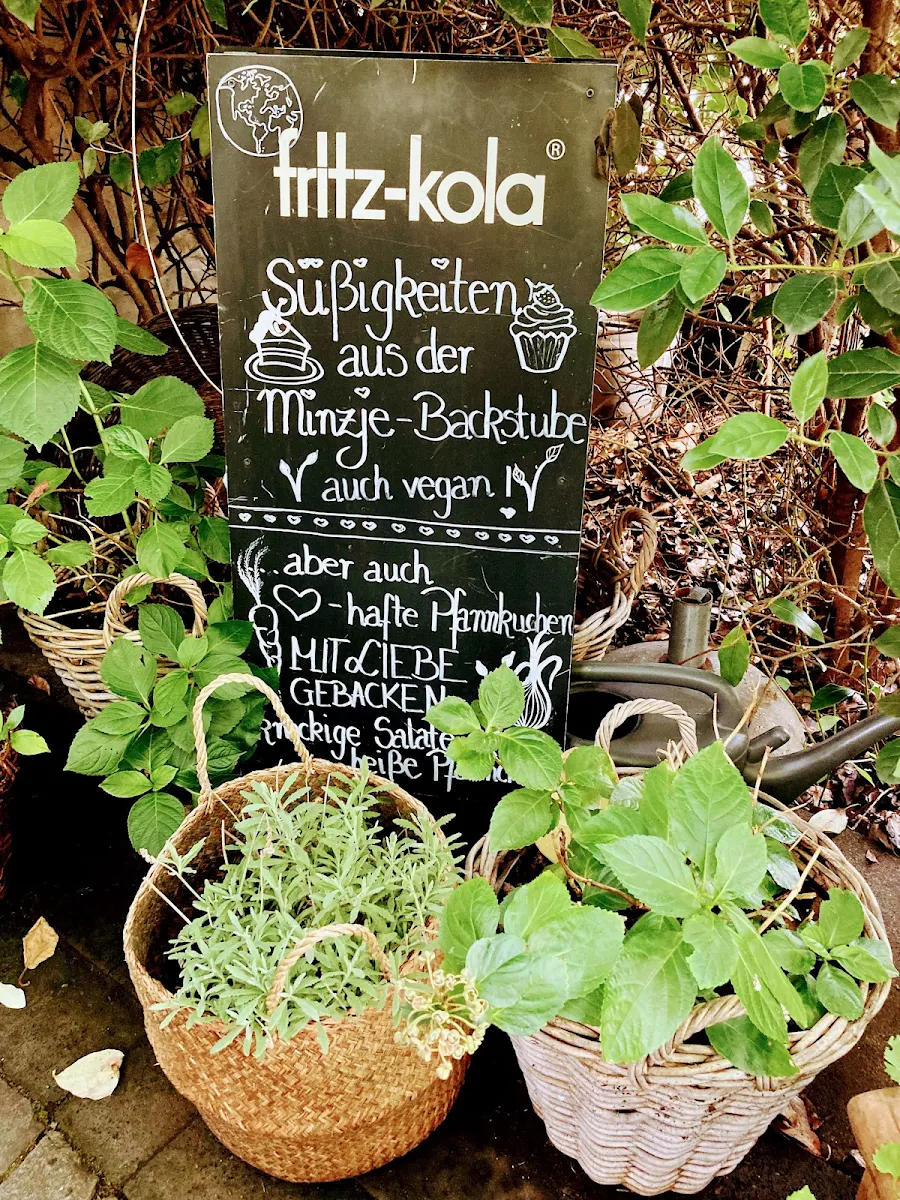 fritz-kola®
Süßigkeiten
aus der
Minzje-Backstube
auch vegan!
..aber auch
♡-hafte Pfannkuchen
MIT LIEBE
GEBACKEN
Salate
heiße